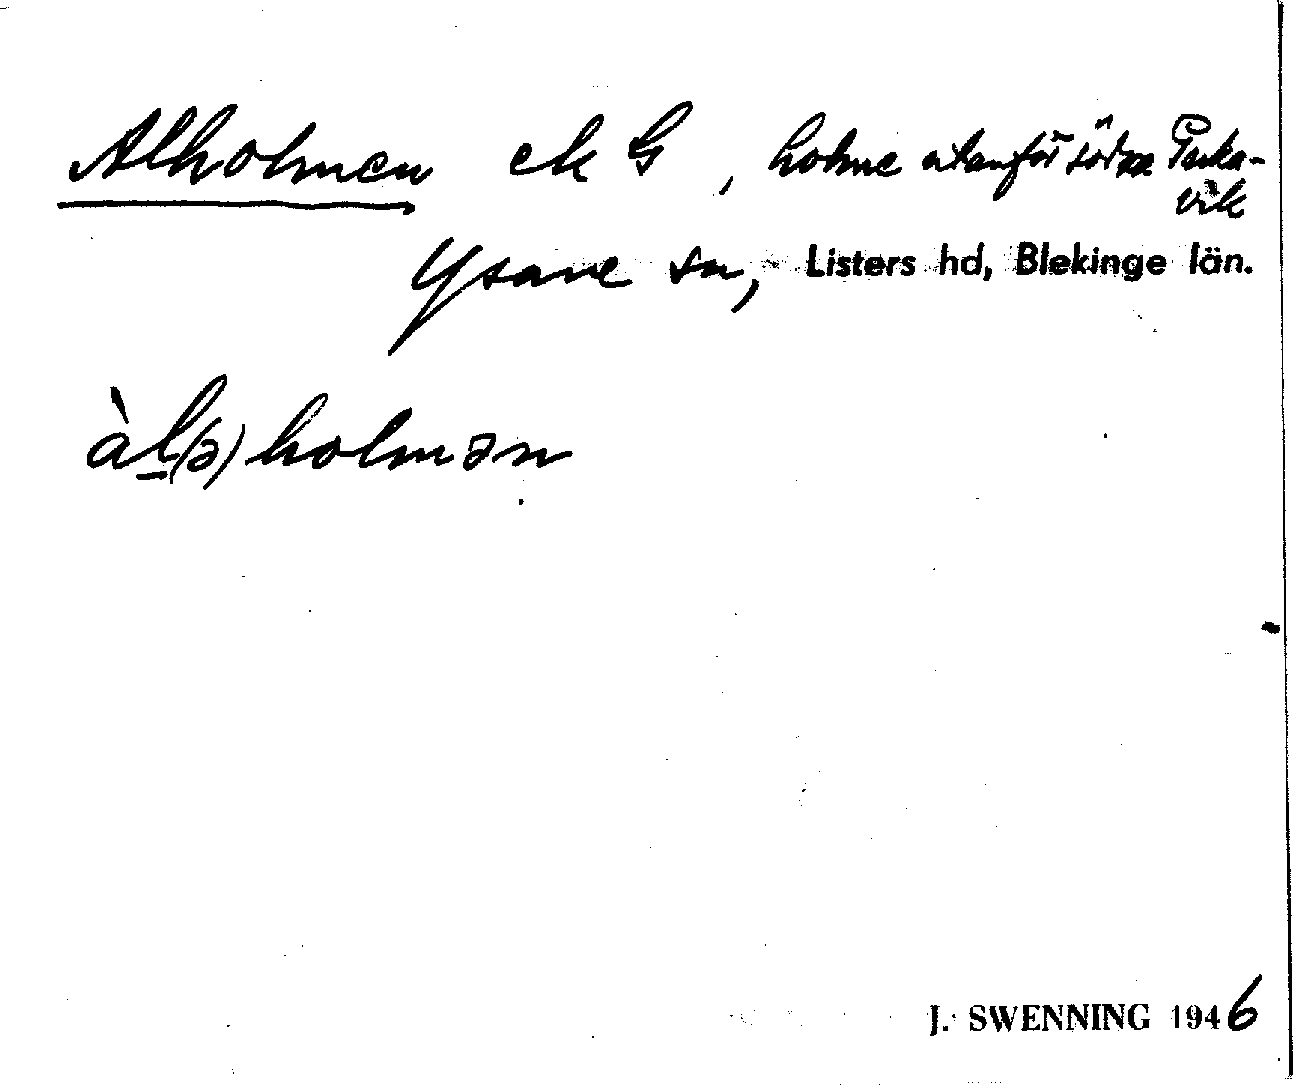 Alholmen ek G, holme utanför södra Puka-
vik
Ysane sn, Listers hd, Blekinge län.
àl(ə)holmən
J. SWENNING 1946